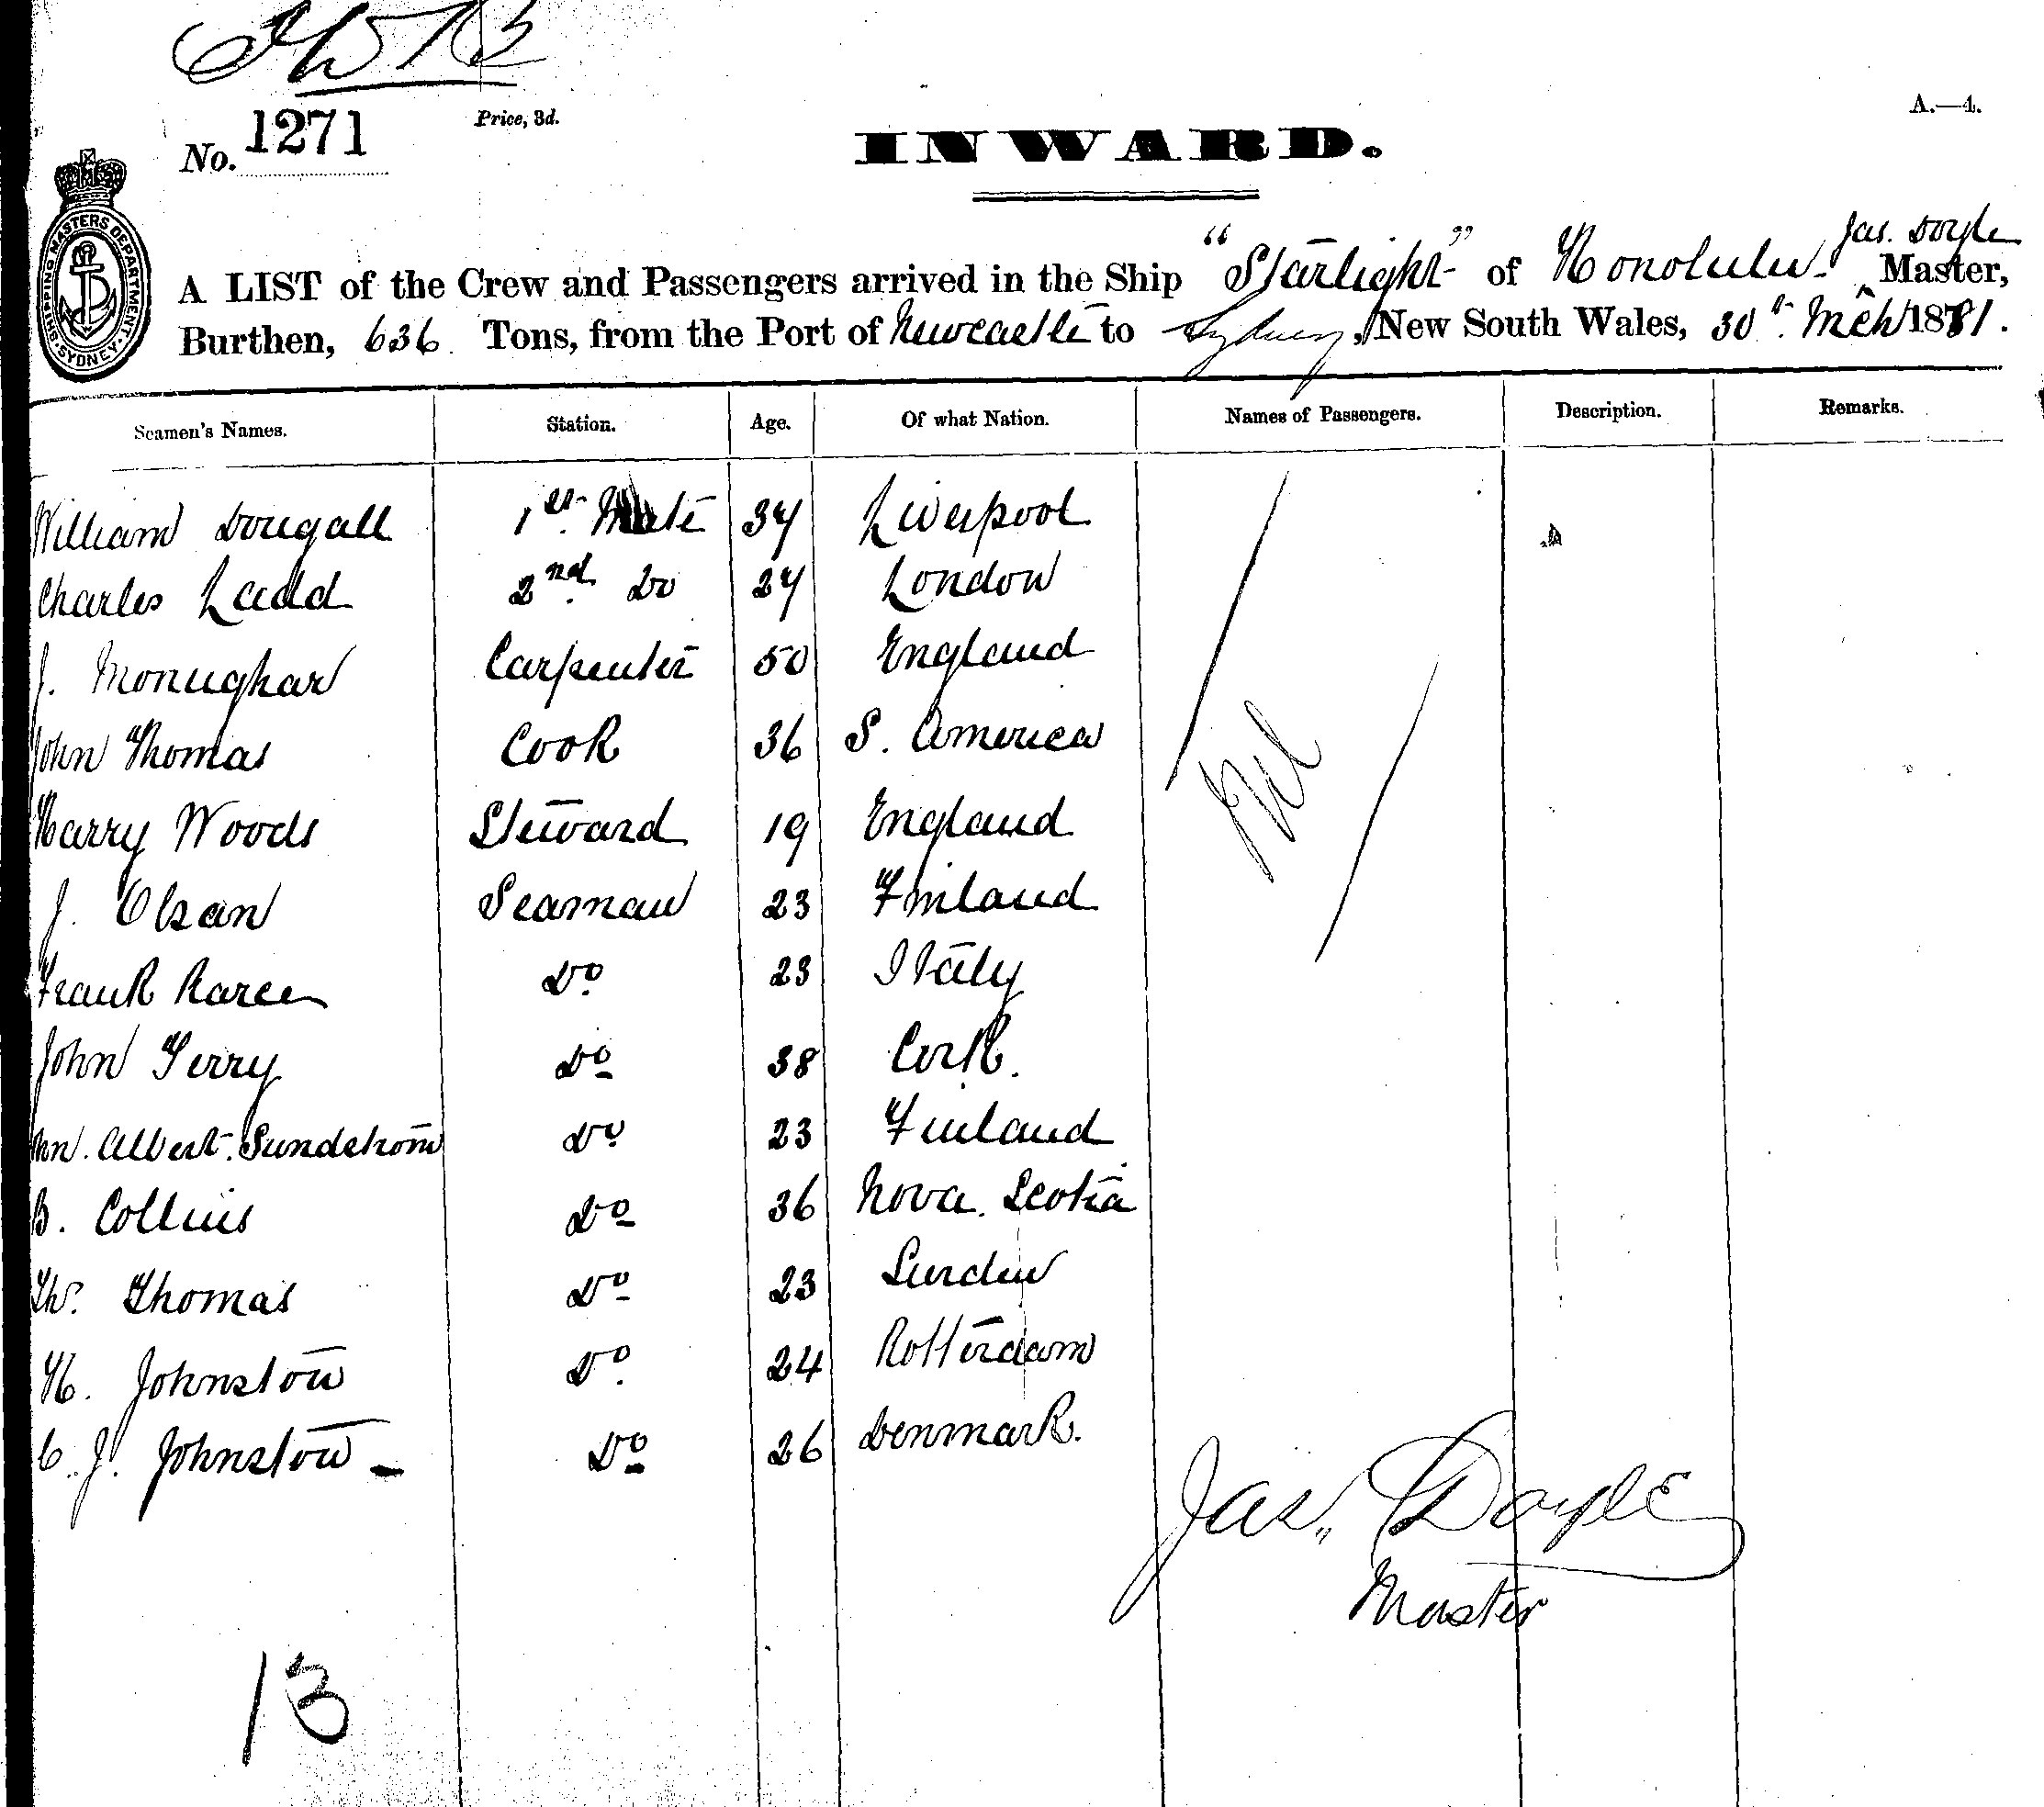 No. 1271 Price, 3d. A.—4.
INWARD.
SHIPPING MASTERS DEPARTMENT SYDNEY
Jas. Doyle
A LIST of the Crew and Passengers arrived in the Ship "Starlight" of Honolulu. Master,
Burthen, 636 Tons, from the Port of Newcastle to Sydney, New South Wales, 30th Mch 1881.
Seamen's Names. Station. Age. Of what Nation. Names of Passengers. Description. Remarks.
William Dougall 1st Mate 34 Liverpool
Charles Ladd 2nd Do 24 London
J. Monughan Carpenter 50 England
John Thomas Cook 36 S. America
Nil
Harry Woods Steward 19 England
J. Olsan Seaman 23 Finland
Frank Do 23 Italy
John Terry Do 38 Cork.
Albert Sundstrom Do 23 Finland
B. Collins Do 36 Nova Scotia
Th. Thomas Do 23
H. Johnston Do 24 Rotterdam
C. J. Johnston Do 26 Denmark.
Jas. Doyle
Master
13